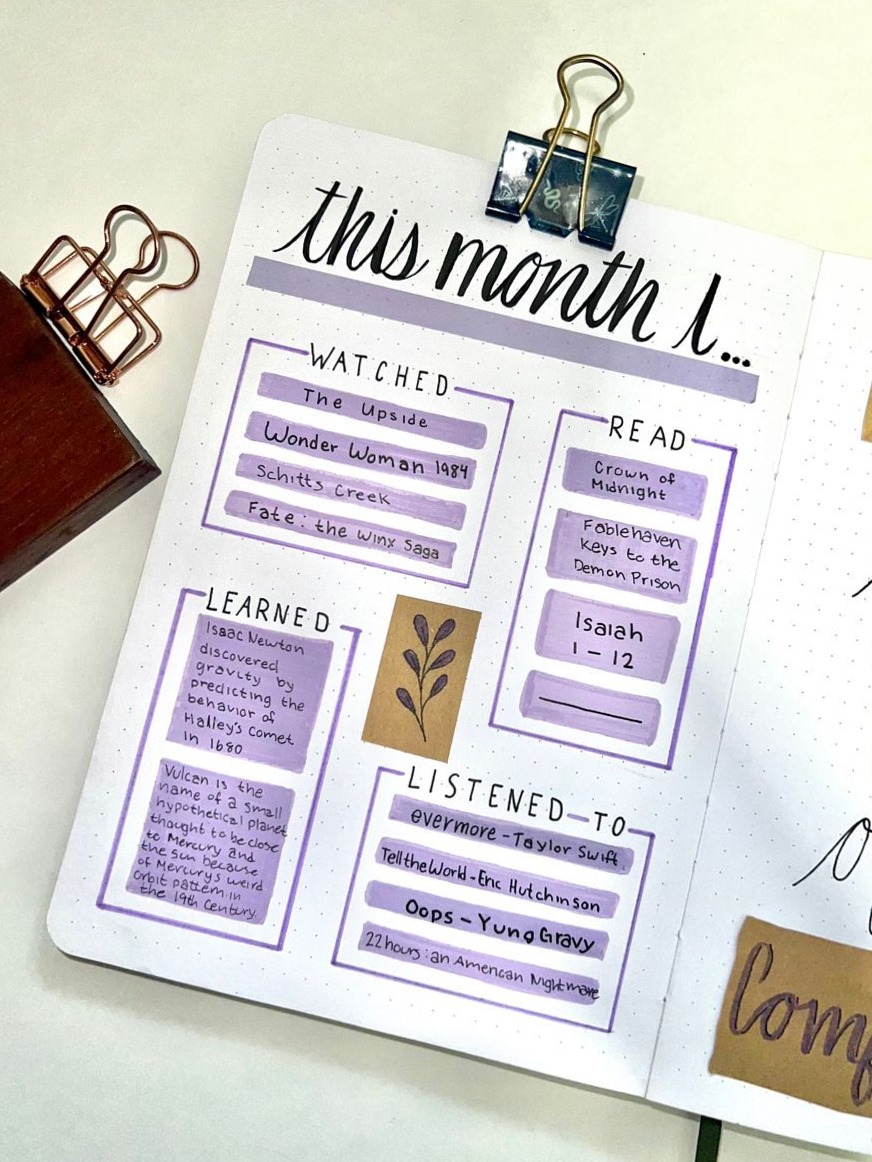 this month I...
WATCHED
The Upside
Wonder Woman 1984
Schitts Creek
Fate: the Winx Saga
READ
Crown of
Midnight
Fablehaven
Keys to the
Demon Prison
Isaiah
1-12
LEARNED
Isaac Newton
discovered
gravity by
predicting the
behavior of
Halley's Comet
in 1680
Vulcan is the
name of a small
hypothetical planet
thought to be close
to Mercury and
the sun because
of Mercury's weird
orbit pattern in
the 19th Century.
LISTENED-TO
evermore-Taylor Swift
Tell the World-Eric Hutchinson
Oops - Yung Gravy
22 hours: an American Nightmare